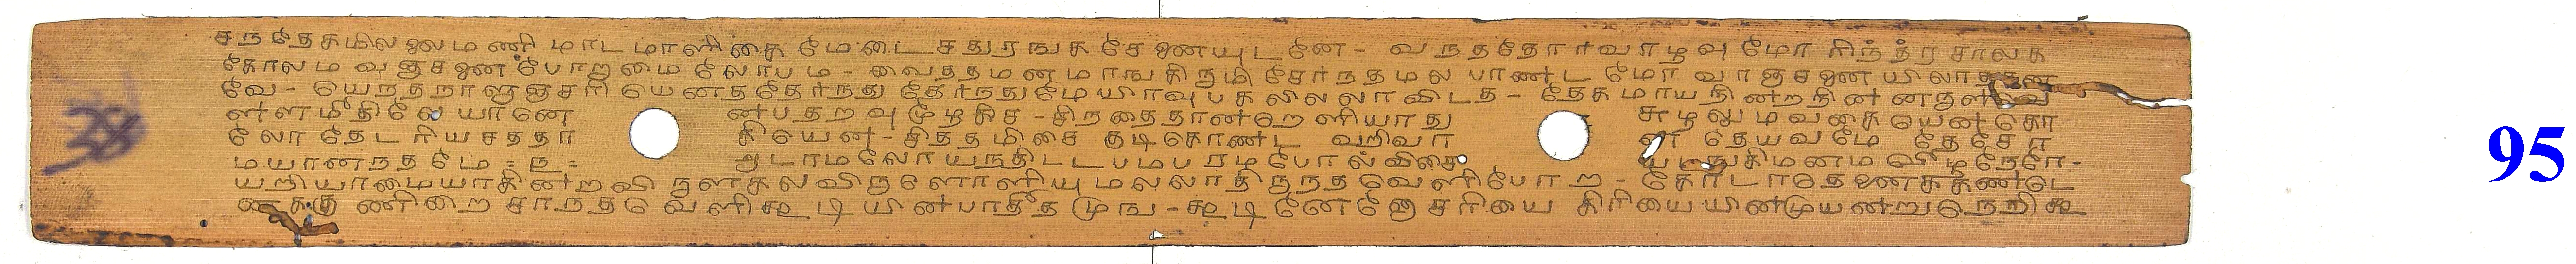 சநதேகமிலலைமணி மாடமாளிகை மேடைசதுரஙக சேனையுடனே - வநததோர்வாழவு மோ ரிந்த்ர சாலக
கோலம வஞசனை பொறாமை லோபம - வைததமனமாஙகிருமி சேர்நதமல பாண்ட மோ வாஞசனை யிலாத
வே - யெநதநாளுஞசரி யெனததேர்நது தேர்நதுமேயிரவுபகலிலலாவிடத - தேகமாயநின்றநின்னருள்வெ
ள்ளமீதிலே யானெ ன்பதறவுமூழகிச - சிநதைதான்றெளியாது சுழலுமவகை யென்கொ
லோ தேடரியசததா கியென் - சிததமிசை குடிகொண்ட வறிவா ன தெயவமே தேசோ
மயானநதமே : ௩ : ஆடாமலோயநதிடடபமபரமபோல்விசை யடஙகிமனமவீழநேரே -
யறியாமையாகின்றவிருளகலவிருளொளியுமலலாதிருநதவெளிபோற - கோடாதெனைககண்டெ
னககுணிறைசாநதவெளிகூடியின்பாதீதமுங - கூடினேனோசரியை கிரியையின்முயன்றுநெறிகூ